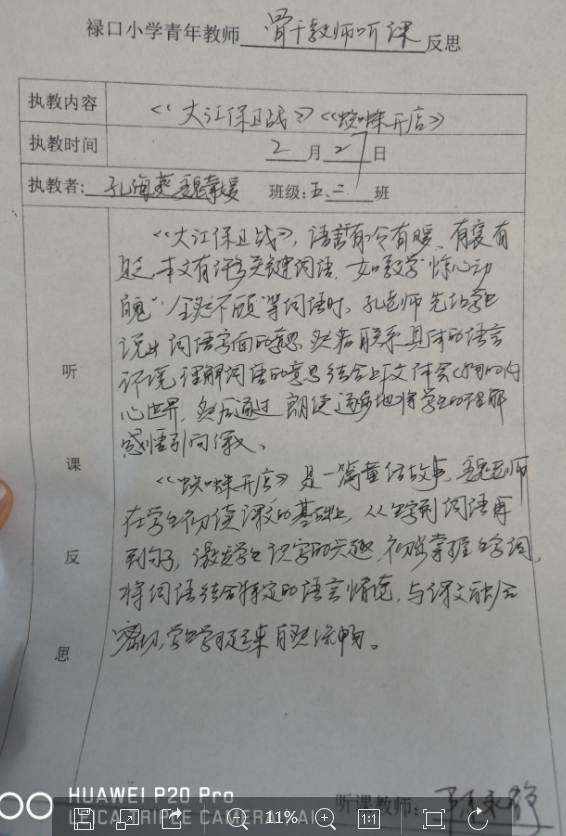 禄口小学青年教师骨干教师听课反思
执教内容 《大江保卫战》《蜘蛛开店》
执教时间 2月27日
执教者: 孔海燕 魏 媛 班级:五.二班
听课反思
《大江保卫战》,语言有令有暖、有褒有
贬,本文有许多关键词语,如教学“惊心动
魄”“全然不顾”等词语时,孔老师先让学生
说出词语字面的意思,然后联系具体的语言
环境理解词语的意思结合上下文体会人物的内
心世界,然后通过朗读逐步地将学生的理解
感悟引向深入、
《蜘蛛开店》是一篇童话故事,魏老师
在学生初读课文的基础上,从生字到词语再
到句子,激发学生识字的兴趣,初步掌握生字词,
将词语结合特定的语言情境,与课文融合
密切,学生学习起来自然流畅。
听课教师:
HUAWEI P20 Pro
LEICA TRIPLE CAMERA AI
11%
1:1